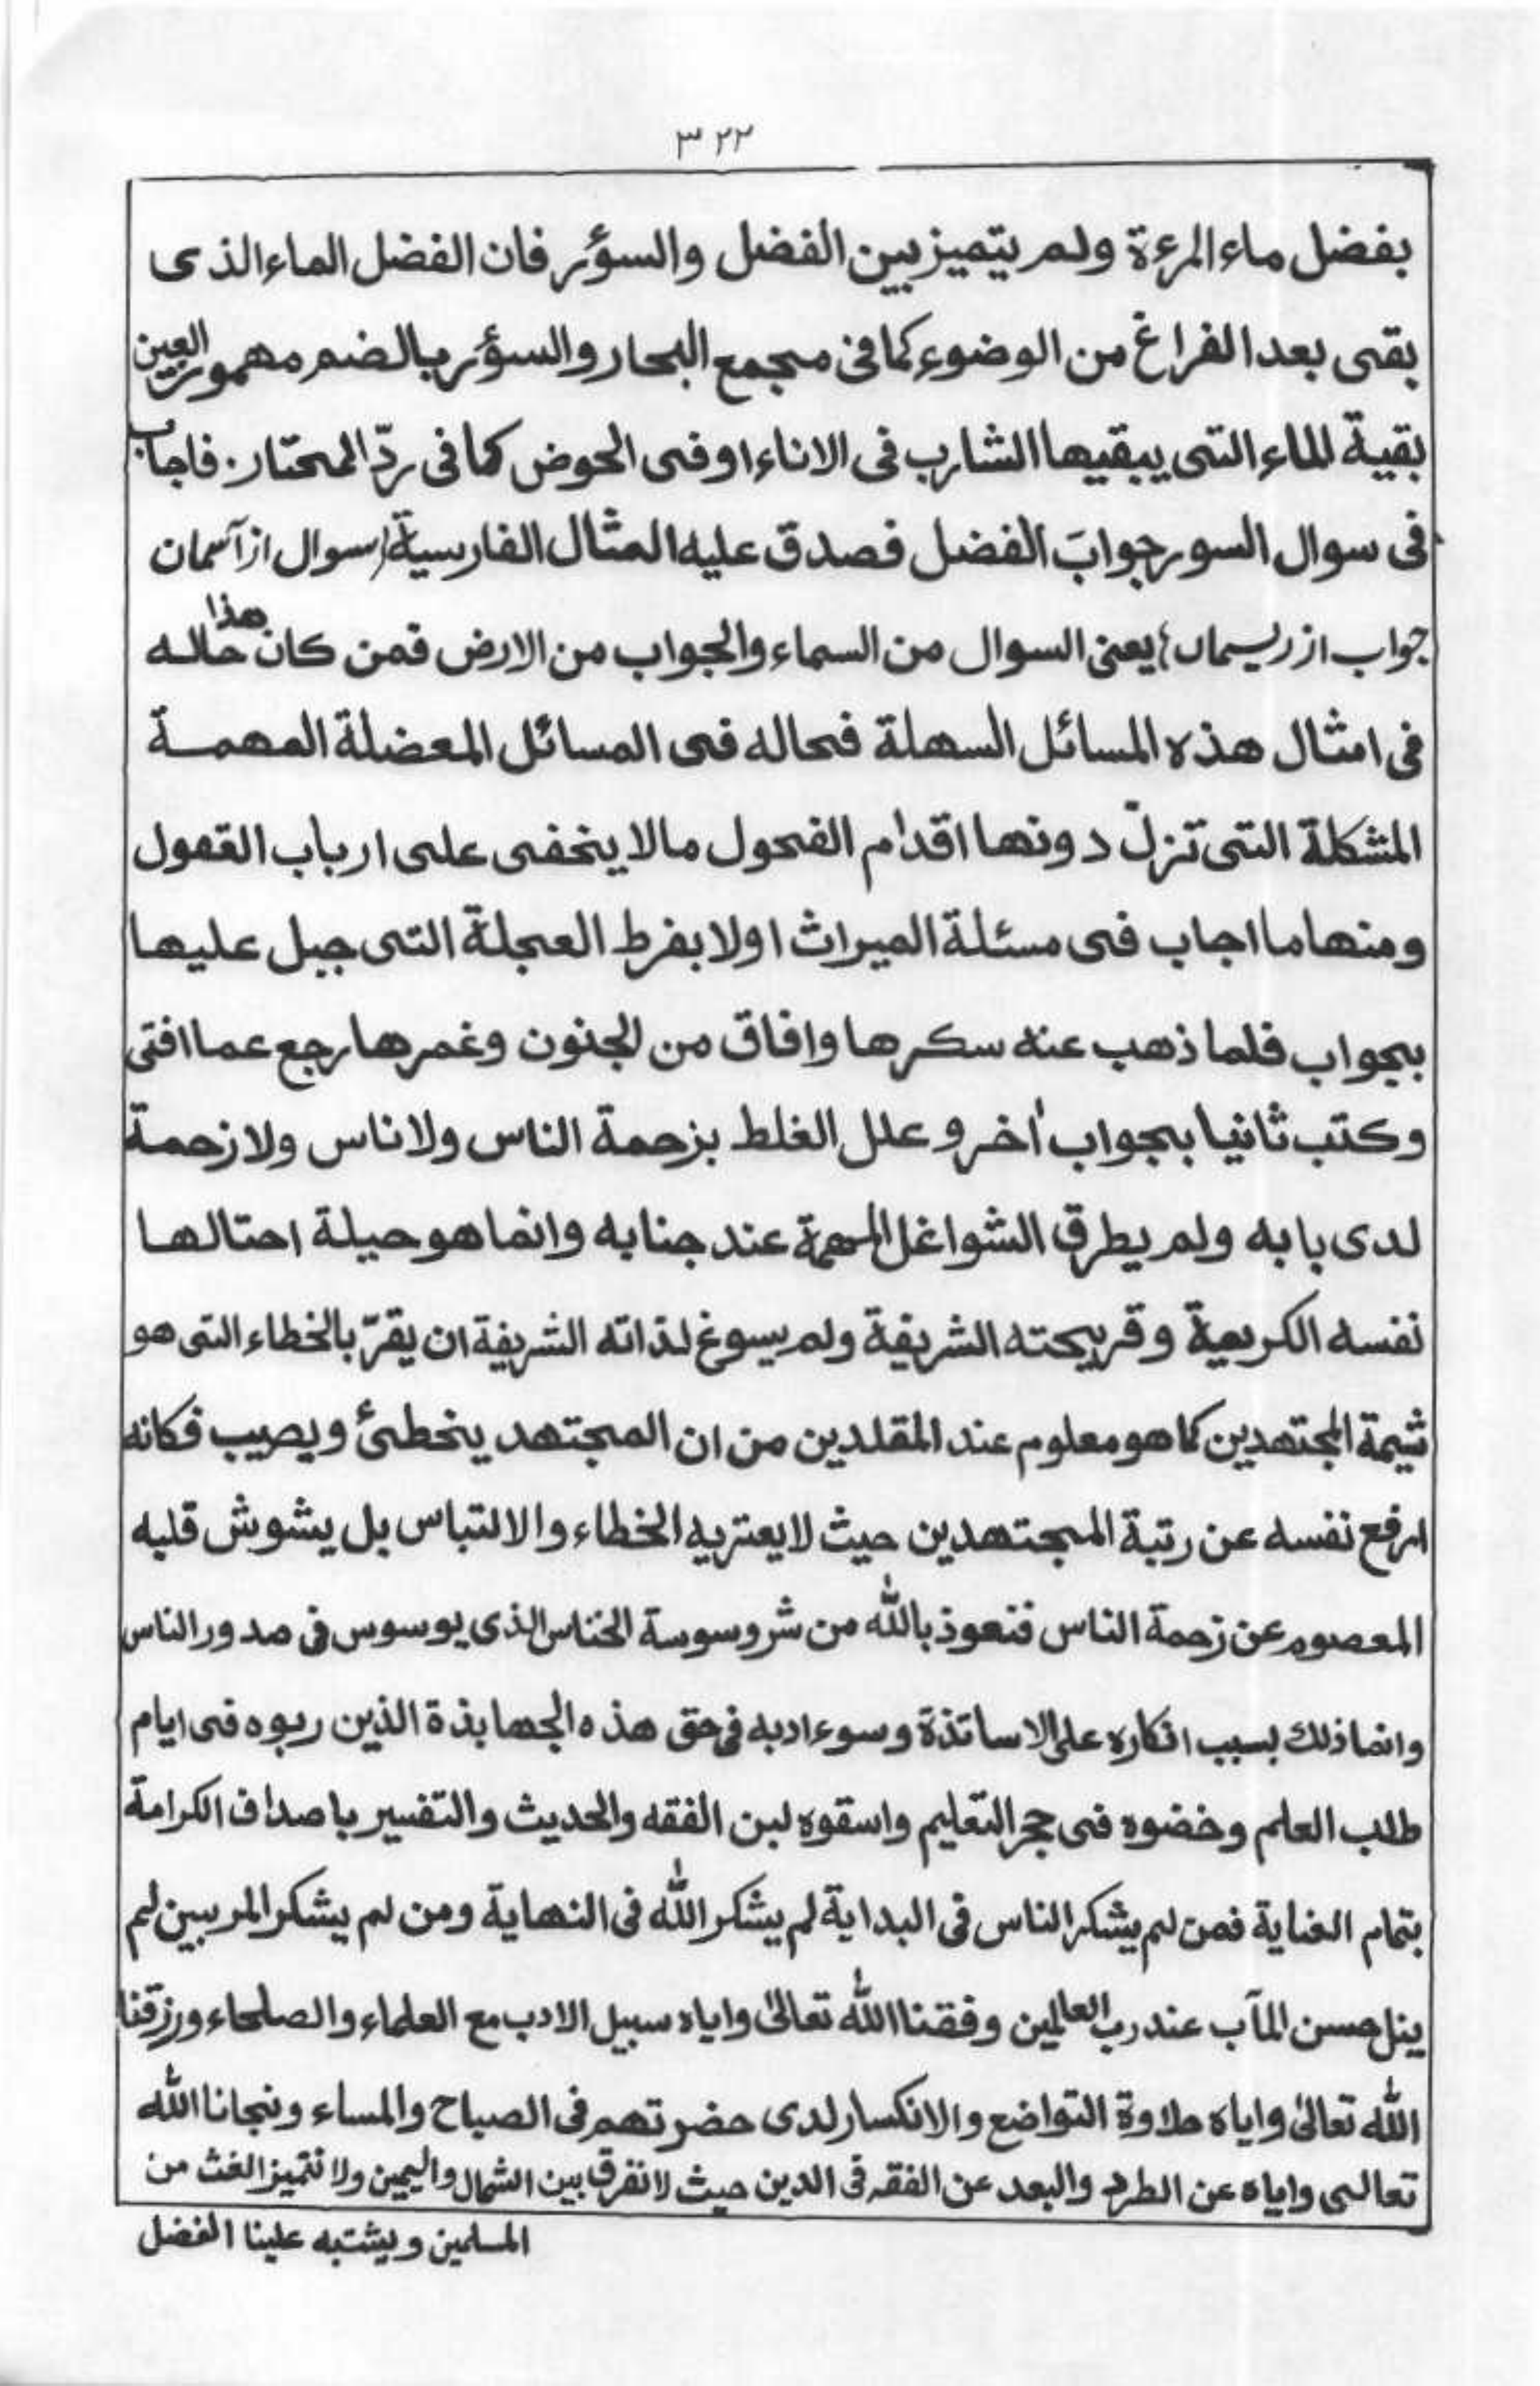 ٣٢٢
بفضل ماء المرءة ولم يتميز بين الفضل والسؤر فان الفضل الماء الذى
بقى بعد الفراغ من الوضوء كما فى مجمع البحار والسؤر بالضم مهموز العين
بقية الماء التى يبقيها الشارب فى الاناء او فى الحوض كما فى ردّ المحتار. فاجاب
فى سوال السور جوابَ الفضل فصدق عليه المثال الفارسية (سوال از آسمان
جواب از ريسمان) يعنى السوال من السماء والجواب من الارض فمن كان هذا حاله
فى امثال هذه المسائل السهلة فحاله فى المسائل المعضلة المهمة
المشكلة التى تزلّ دونها اقدام الفحول مالا يخفى على ارباب القعول
ومنها ما اجاب فى مسئلة الميراث اولا بفرط العجلة التى جبل عليها
بجواب فلما ذهب عنه سكرها وافاق من الجنون وغمرها رجع عما افتى
وكتب ثانيا بجواب أخر وعلل الغلط بزحمة الناس ولا ناس ولا زحمة
لدى بابه ولم يطرق الشواغل المهمة عند جنابه وانما هو حيلة احتالها
نفسه الكريمة وقريحته الشريفة ولم يسوغ لذاته الشريفة ان يقرّ بالخطاء التى هو
شيمة المجتهدين كما هو معلوم عند المقلدين من ان المجتهد يخطئ ويصيب فكانه
ارفع نفسه عن رتبة المجتهدين حيث لا يعتريه الخطاء والالتباس بل يشوش قلبه
المعصوم عن زحمة الناس فنعوذ بالله من شر وسوسة الخناس الذى يوسوس فى صدور الناس
وانما ذلك بسبب انكاره على الاساتذة وسوء ادبه فى حق هذه الجهابذة الذين ربوه فى ايام
طلب العلم وخضوه فى حجر التعليم واسقوه لبن الفقه والحديث والتفسير باصداف الكرامة
بتمام العناية فمن لم يشكر الناس فى البداية لم يشكر الله فى النهاية ومن لم يشكر المربيين لم
ينل حسن المآب عند رب العالمين وفقنا الله تعالىٰ واياه سبيل الادب مع العلماء والصلحاء ورزقنا
الله تعالىٰ واياه حلاوة التواضع والانكسار لدى حضرتهم فى الصباح والمساء ونجانا الله
تعالى واياه عن الطرد والبعد عن الفقه فى الدين حيث لا نفرق بين الشمال واليمين ولا نتميز الغث من
المسلمين ويشتبه علينا الفضل